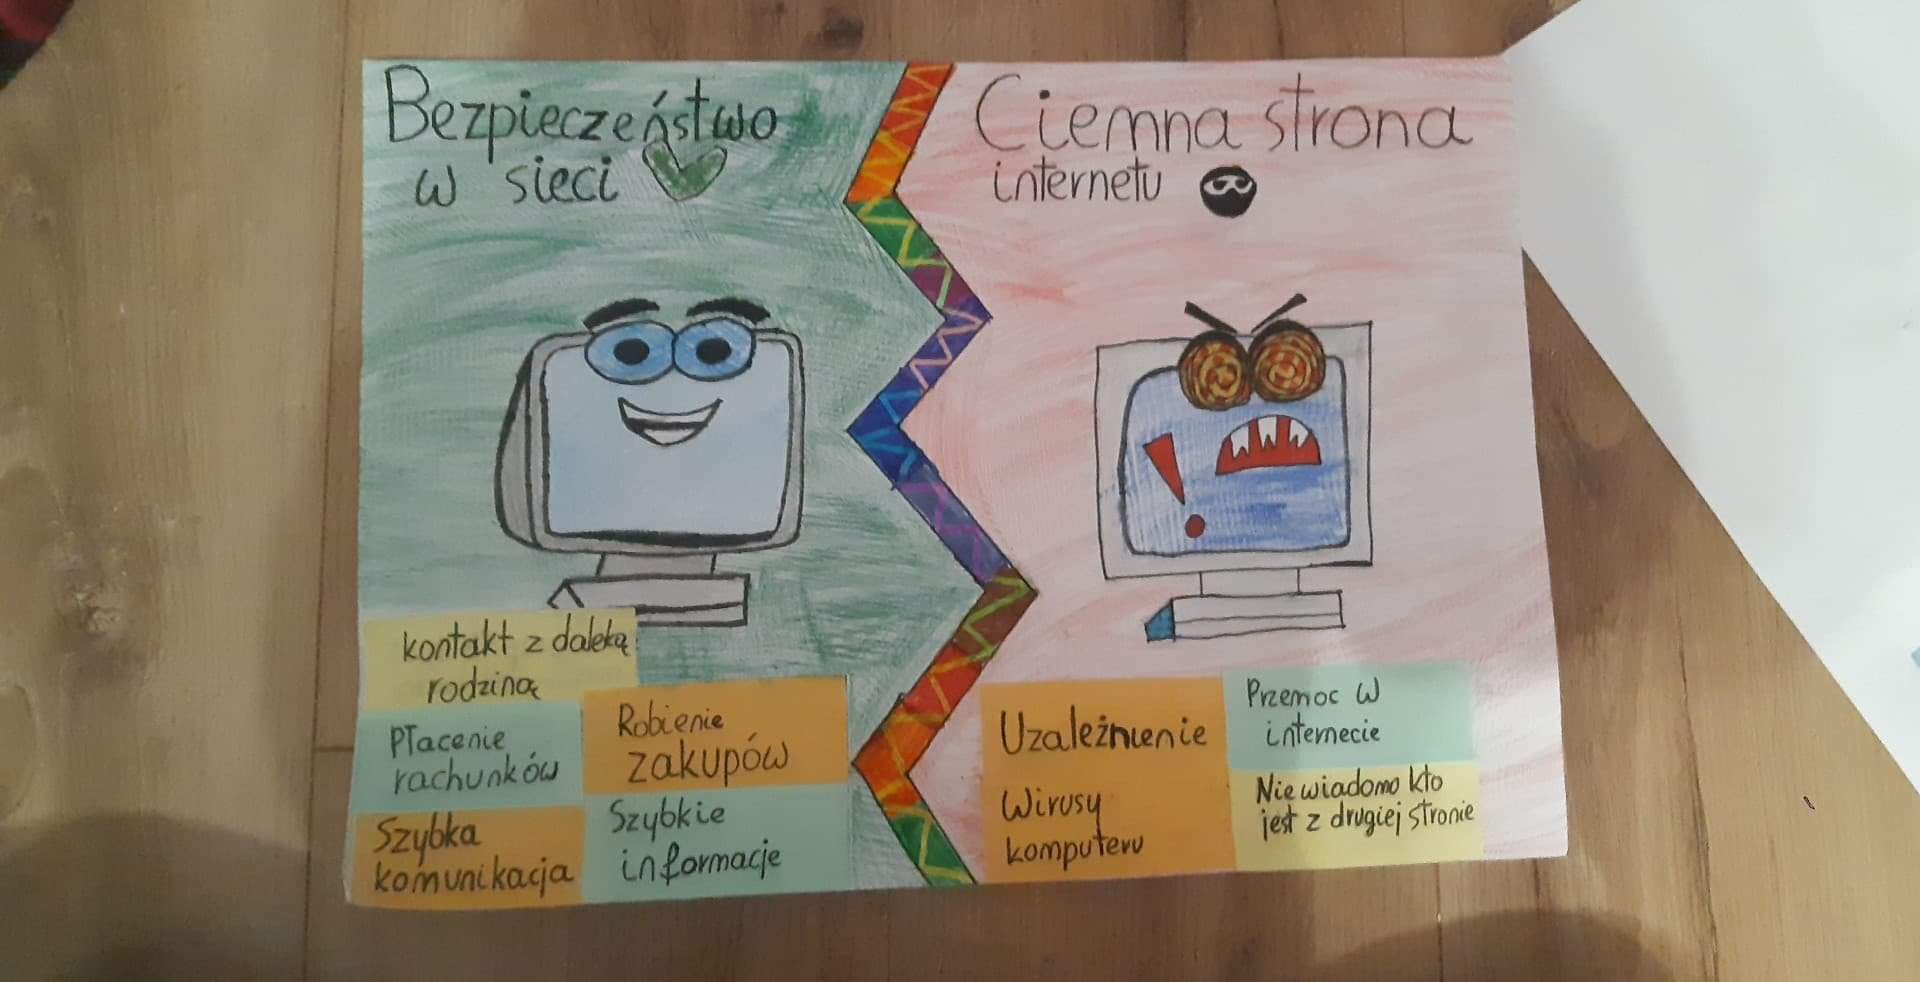 Bezpieczeństwo
w sieci
kontakt z daleką
rodziną
Płacenie
rachunków
Robienie
zakupów
Szybka
komunikacja
Szybkie
informacje
Ciemna strona
internetu
!
Uzależnienie
Wirusy
komputeru
Przemoc w
internecie
Nie wiadomo kto
jest z drugiej stronie